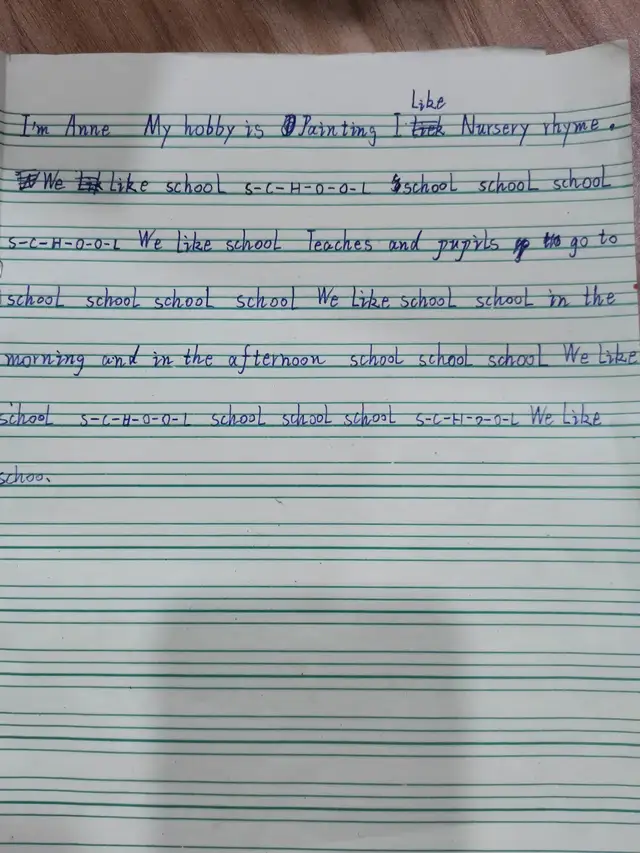 Like
I'm Anne My hobby is Painting I Nursery rhyme.
We Like school S-C-H-O-O-L school school school
S-C-H-O-O-L We Like school Teaches and pupils go to
school school school school We Like school school in the
morning and in the afternoon school school school We Like
school S-C-H-O-O-L school school school S-C-H-O-O-L We Like
schoo.